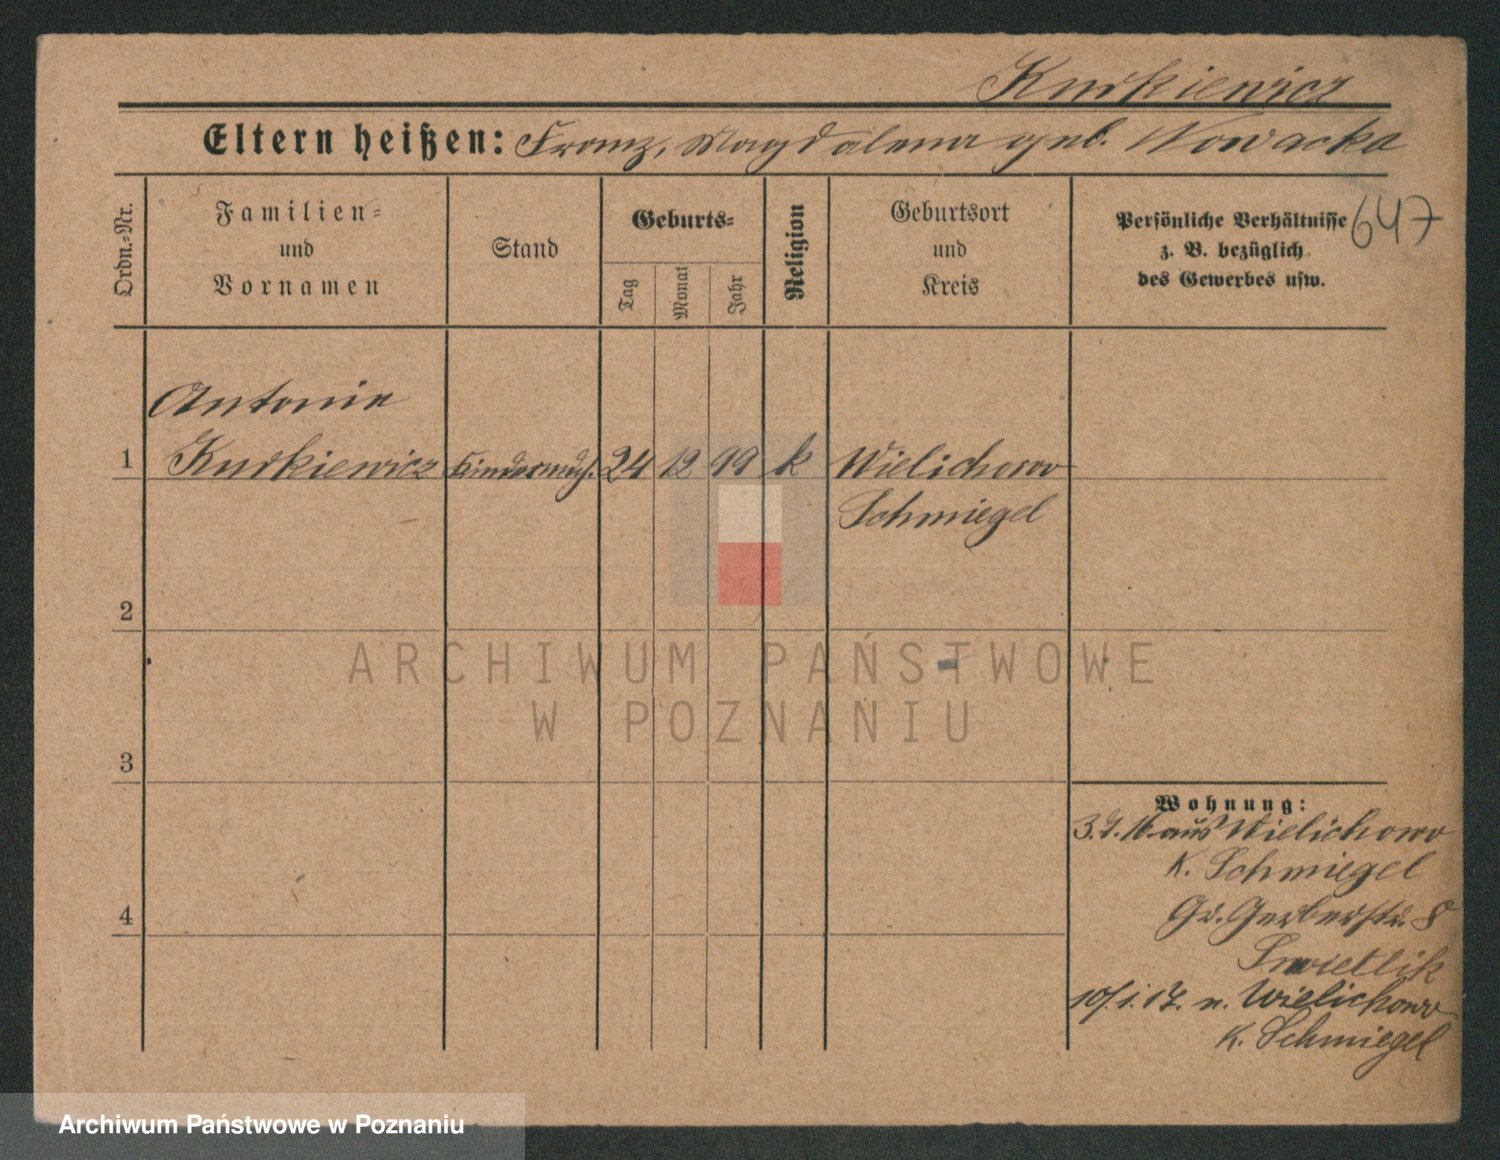 Kurkiewicz
Eltern heißen: Franz, Magdalena geb. Nowacka
Ordn.-Nr.
Familien-
und
Vornamen
Stand
Geburts-
Tag
Monat
Jahr
Religion
Geburtsort
und
Kreis
Persönliche Verhältnisse
z. B. bezüglich
des Gewerbes usw.
647
Antonie
1 Kurkiewicz Kindermdch. 24 12 99 k Wielichowo
Schmiegel
2
3
4
Wohnung:
3. 7. 16. aus Wielichowo
K. Schmiegel
Gr. Gerberstr. 8
Swietlik
10/1. 17. n. Wielichowo
K. Schmiegel
ARCHIWUM PAŃSTWOWE
W POZNANIU
Archiwum Państwowe w Poznaniu